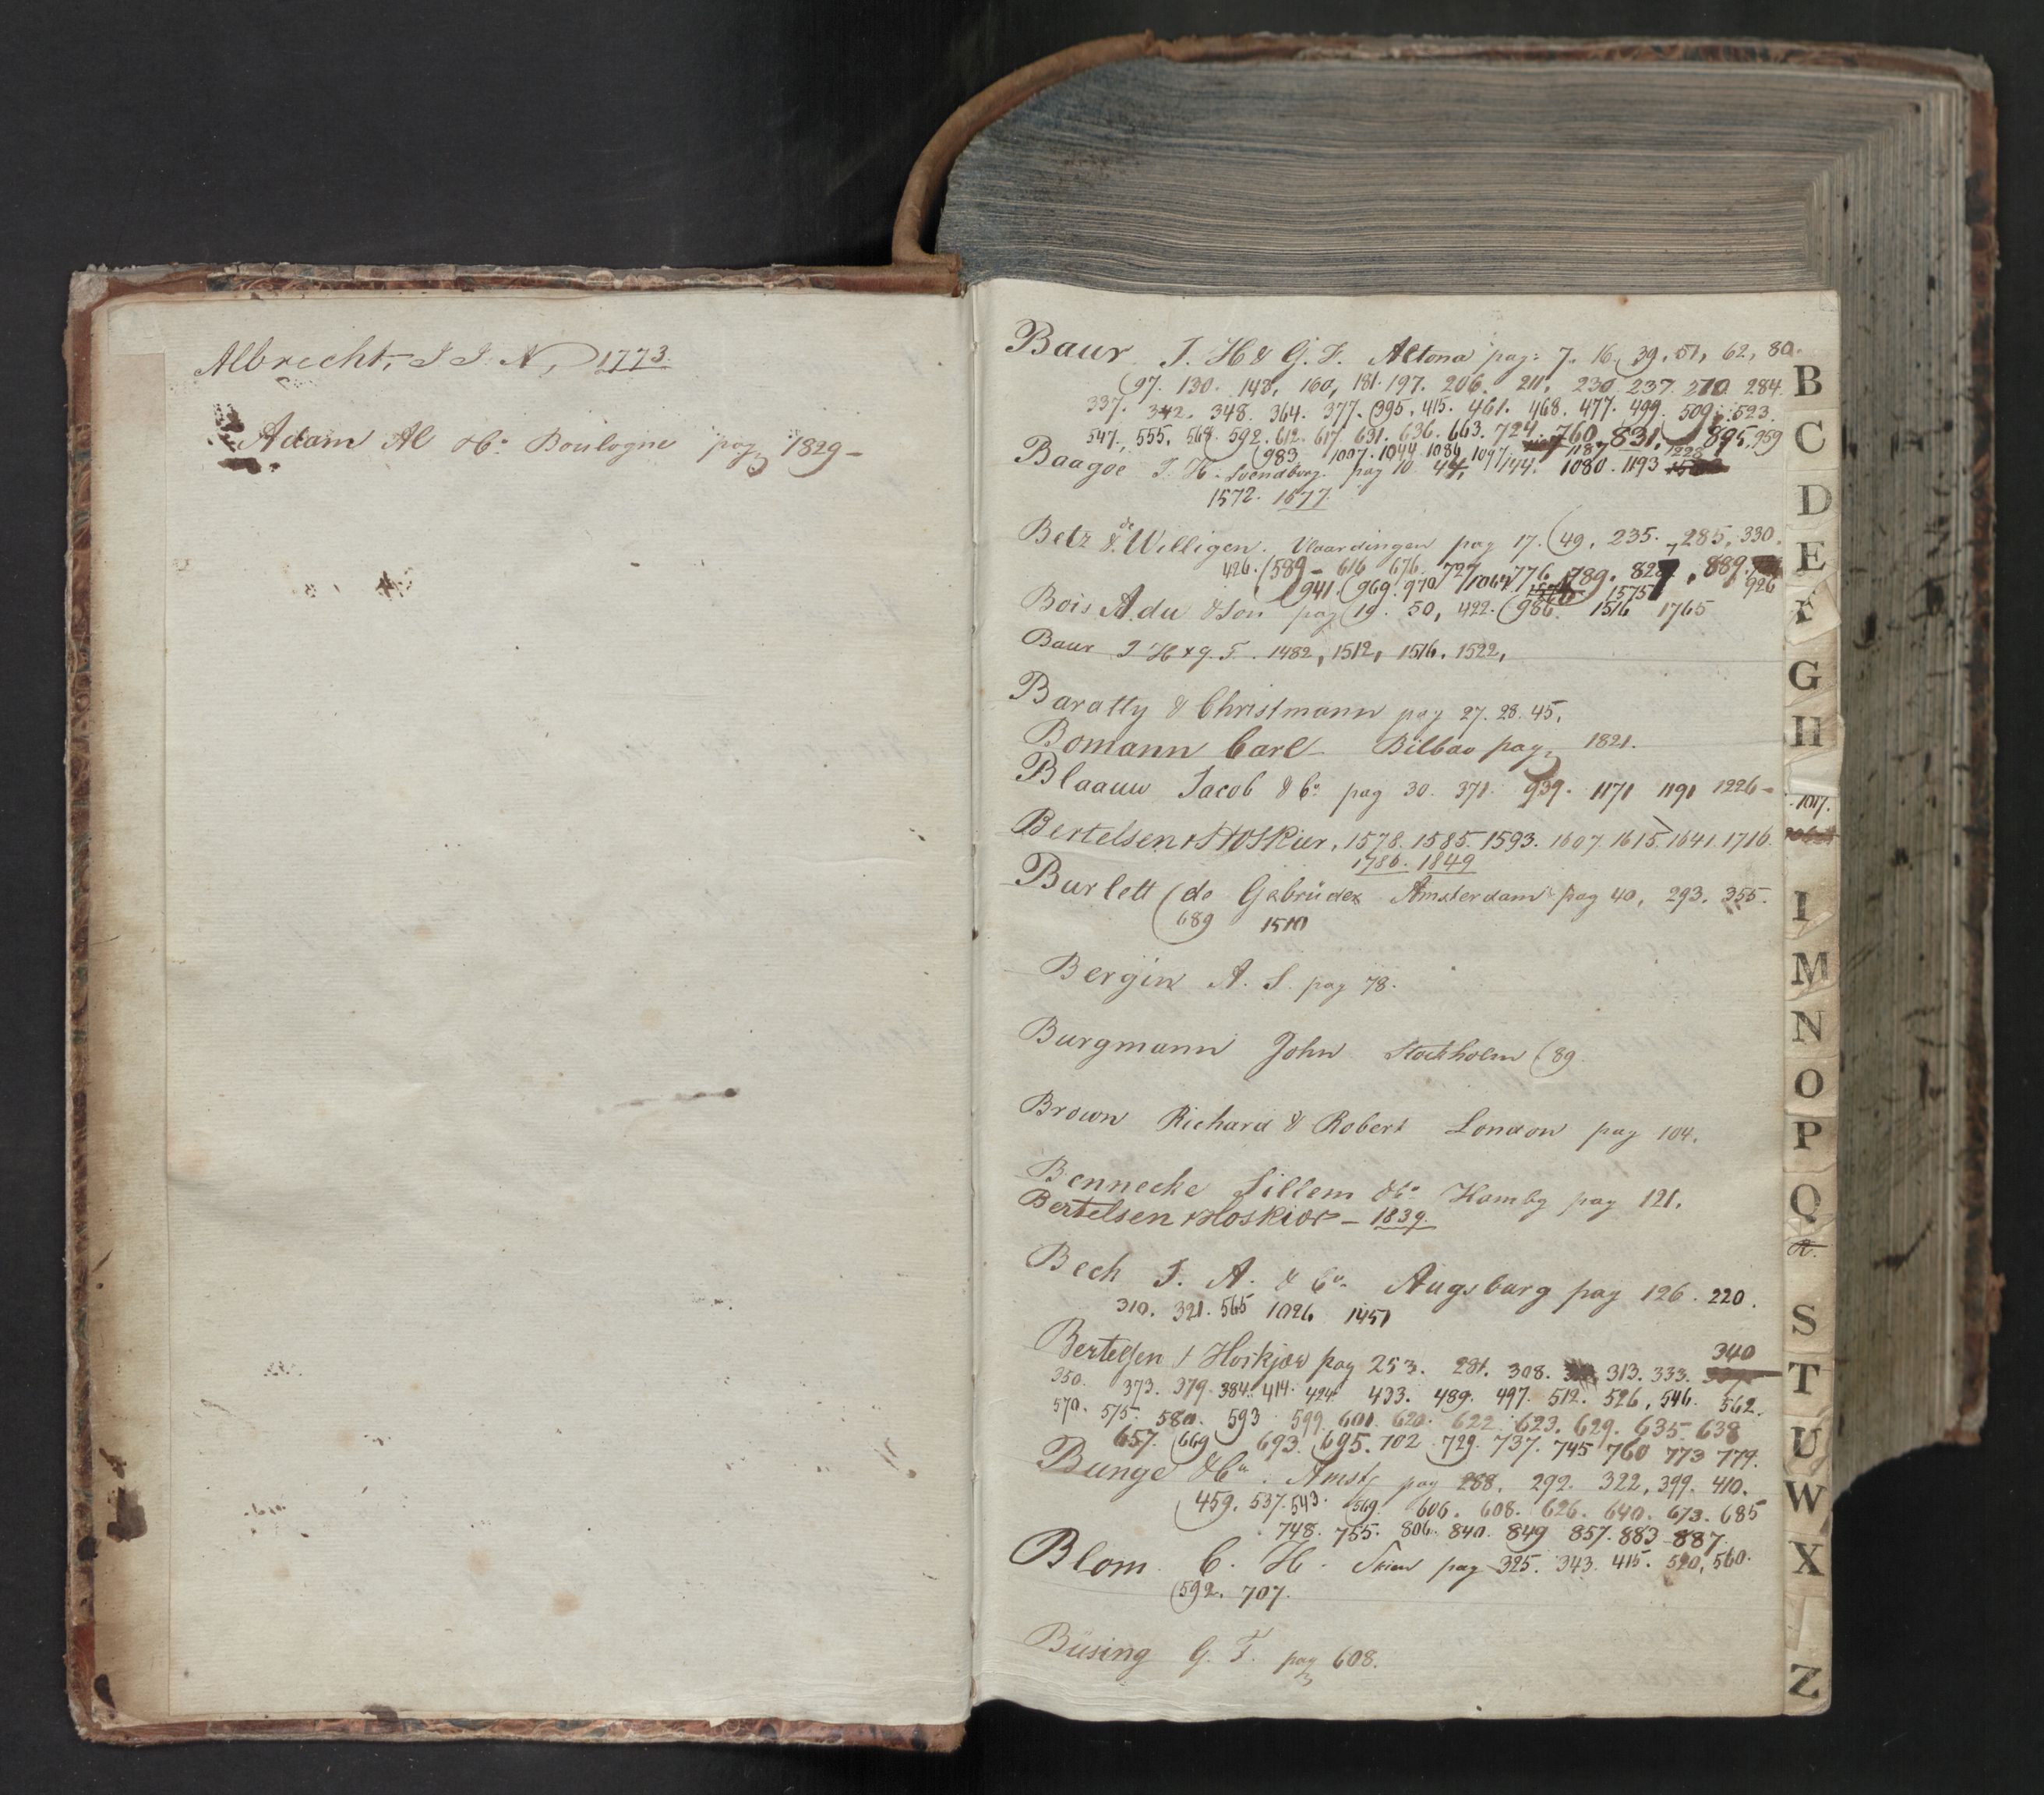 Albrecht, J J. N, 1773.
Adam Al & Co. Boulogne pag 1829 –
Baur J. H & G. F. Altona pag: 7. 16. 39, 51, 62, 80.
97. 130. 148, 160, 181. 197. 206. 211, 230. 237. 270. 284.
337. 342. 348. 364. 377. 395. 415. 461. 468. 477. 499. 509. 523.
547, 555, 568. 592. 612. 617. 631. 636. 663. 724. 760. 831, 895, 959
983. 1007. 1044 1086 1097. 1187 1228
Baagoe J. H. Svendborg. pag 10. 44, 1144. 1080. 1193
1572. 1677.
Betz & de Willigen. Vlaardingen pag 17. 49, 235. 285, 330.
426. 589 – 616 676. 727 776. 789. 828, 889.
941. 969. 970 1064 1575 926
Bois A. du & Son pag 19. 50, 422. 986. 1516 1765
Baur J H & G. F. 1482, 1512, 1516. 1522,
Baratty & Christmann pag 27. 28. 45.
Bomann Carl – Bilbao pag 1821.
Blaauw Jacob & Co pag 30. 371. 939. 1171 1191 1226 –
1017.
Bertelsen & Hoskier, 1578. 1585. 1593. 1607. 1615. 1641. 1716.
1786. 1849
Burlett (de Gebrüder Amsterdam pag 40, 293. 355.
689 1510
Bergin A. S. pag 78.
Burgmann John Stockholm 89.
Brown Richard & Robert London pag 104.
Bennecke Sillem & Co Hambg pag 121.
Bertelsen & Hoskier – 1839.
Bech J. A. & Co. Augsburg pag 126. 220.
310. 321. 565 1026 1451
Bertelsen & Hoskjær pag 253. 281. 308. 313. 333. 340
350. 373. 379. 384. 414. 424. 433. 489. 497. 512. 526, 546. 562.
570. 575. 580. 593 599. 601. 620. 622. 623. 629. 635. 638
657. 669 693. 695. 702. 729. 737. 745 760 773 779.
Bunge & Co. Amst, pag 288. 292. 322, 399. 410.
459. 537. 543. 569. 606. 608. 626. 640. 673. 685
748. 755. 806. 840. 849 857. 883 887.
Blom C. H. Skien pag 325. 343. 415. 520, 560.
592. 707.
Büsing G. F. pag 608.
B
C
D
E
F
G
H
I
M
N
O
P
Q
R.
S
T
U
W
X
Z